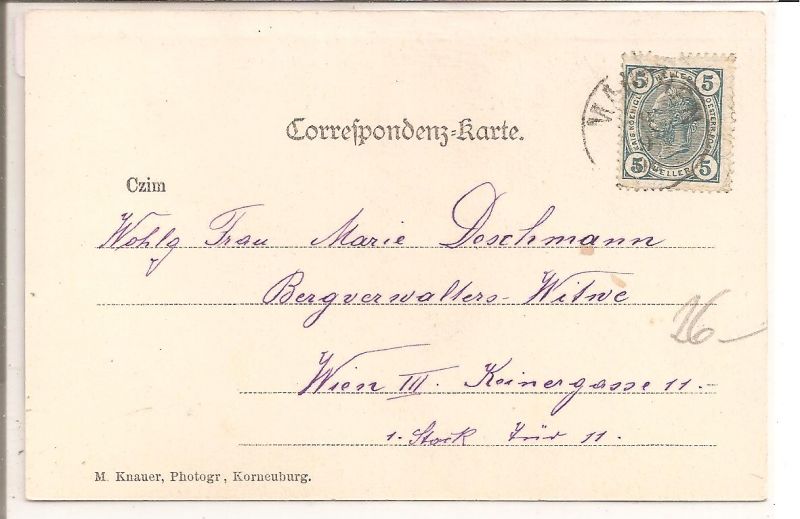 5 HELLER 5
5 HELLER 5
Correspondenz-Karte.
Czim
Wohlg Frau Marie Deschmann
Bergverwalters-Witwe
16-
Wien III. Keinergasse 11.-
1. Stock Tür 11.
M. Knauer, Photogr, Korneuburg.